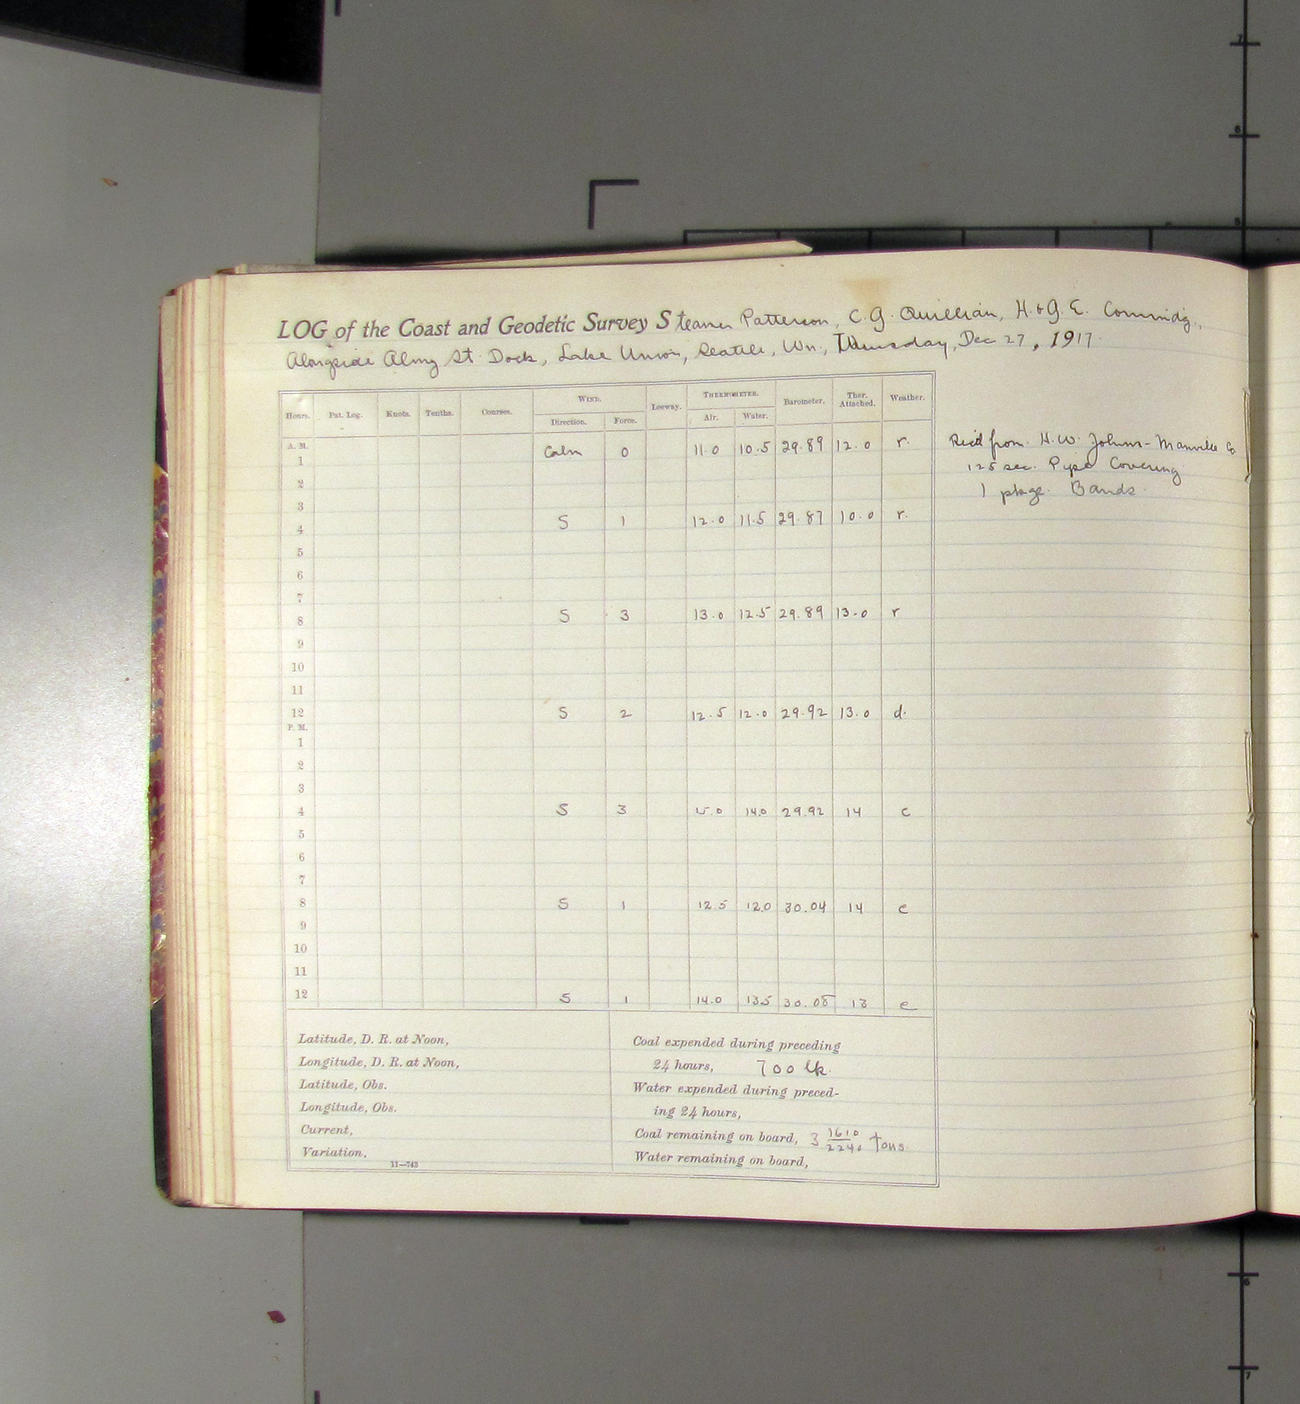 LOG of the Coast and Geodetic Survey Steamer Patterson, C. G. Quillian, H. & G. E. Commidg.,
Alongside Almy St. Dock, Lake Union, Seattle, Wn., Thursday, Dec 27, 1917.
Hours. Pat. Log. Knots. Tenths. Courses. WIND. Leeway. THERMOMETER. Barometer. Ther. Attached. Weather.
Direction. Force. Air. Water.
A. M.
1 Calm 0 11.0 10.5 29.89 12.0 r.
2
3
4 S 1 12.0 11.5 29.87 10.0 r.
5
6
7
8 S 3 13.0 12.5 29.89 13.0 r
9
10
11
12 S 2 12.5 12.0 29.92 13.0 d.
P. M.
1
2
3
4 S 3 15.0 14.0 29.92 14 c
5
6
7
8 S 1 12.5 12.0 30.04 14 c
9
10
11
12 S 1 14.0 13.5 30.08 13 c
Rec'd from H. W. Johns-Manville Co
125 sec. Pipe Covering
1 pkge. Bands.
Latitude, D. R. at Noon,
Longitude, D. R. at Noon,
Latitude, Obs.
Longitude, Obs.
Current,
Variation,
11—743
Coal expended during preceding
24 hours, 700 lb.
Water expended during preced-
ing 24 hours,
Coal remaining on board, 3 1610/2240 tons
Water remaining on board,